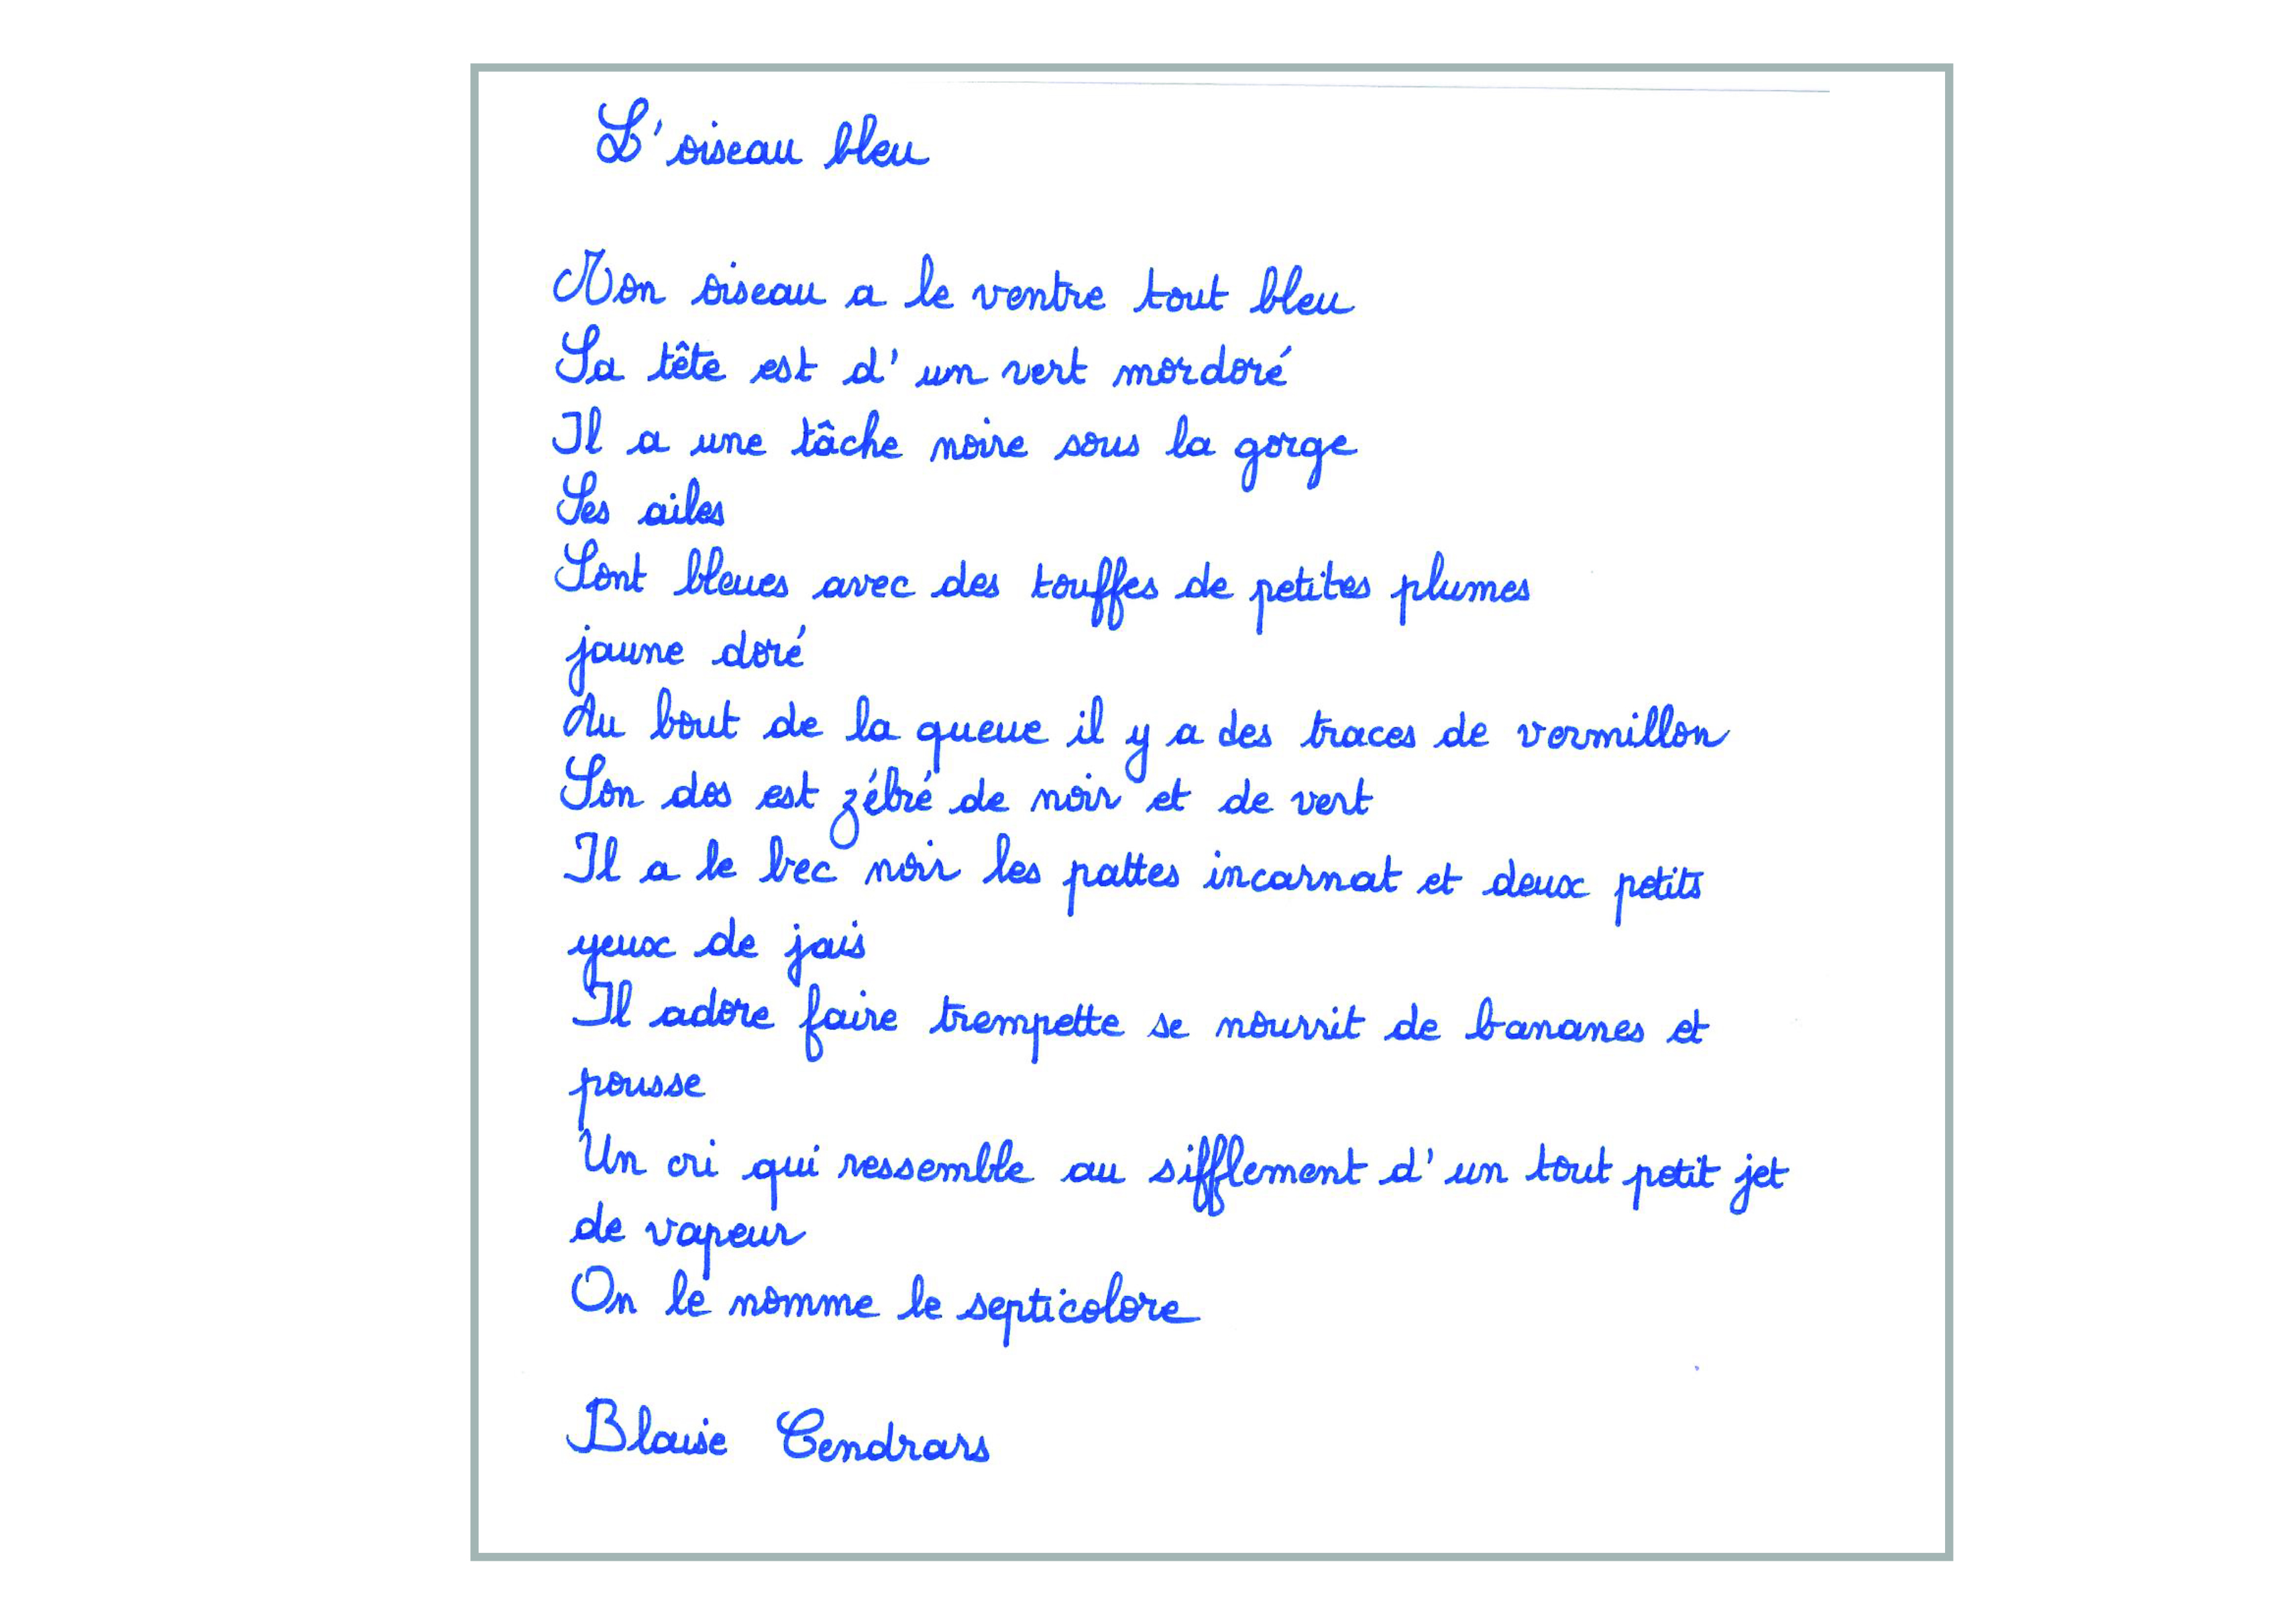 L'oiseau bleu
Mon oiseau a le ventre tout bleu
Sa tête est d' un vert mordoré
Il a une tâche noire sous la gorge
Ses ailes
Sont bleues avec des touffes de petites plumes
jaune doré
Au bout de la queue il y a des traces de vermillon
Son dos est zébré de noir et de vert
Il a le bec noir les pattes incarnat et deux petits
yeux de jais
Il adore faire trempette se nourrit de bananes et
pousse
Un cri qui ressemble au sifflement d' un tout petit jet
de vapeur
On le nomme le septicolore
Blaise Cendrars